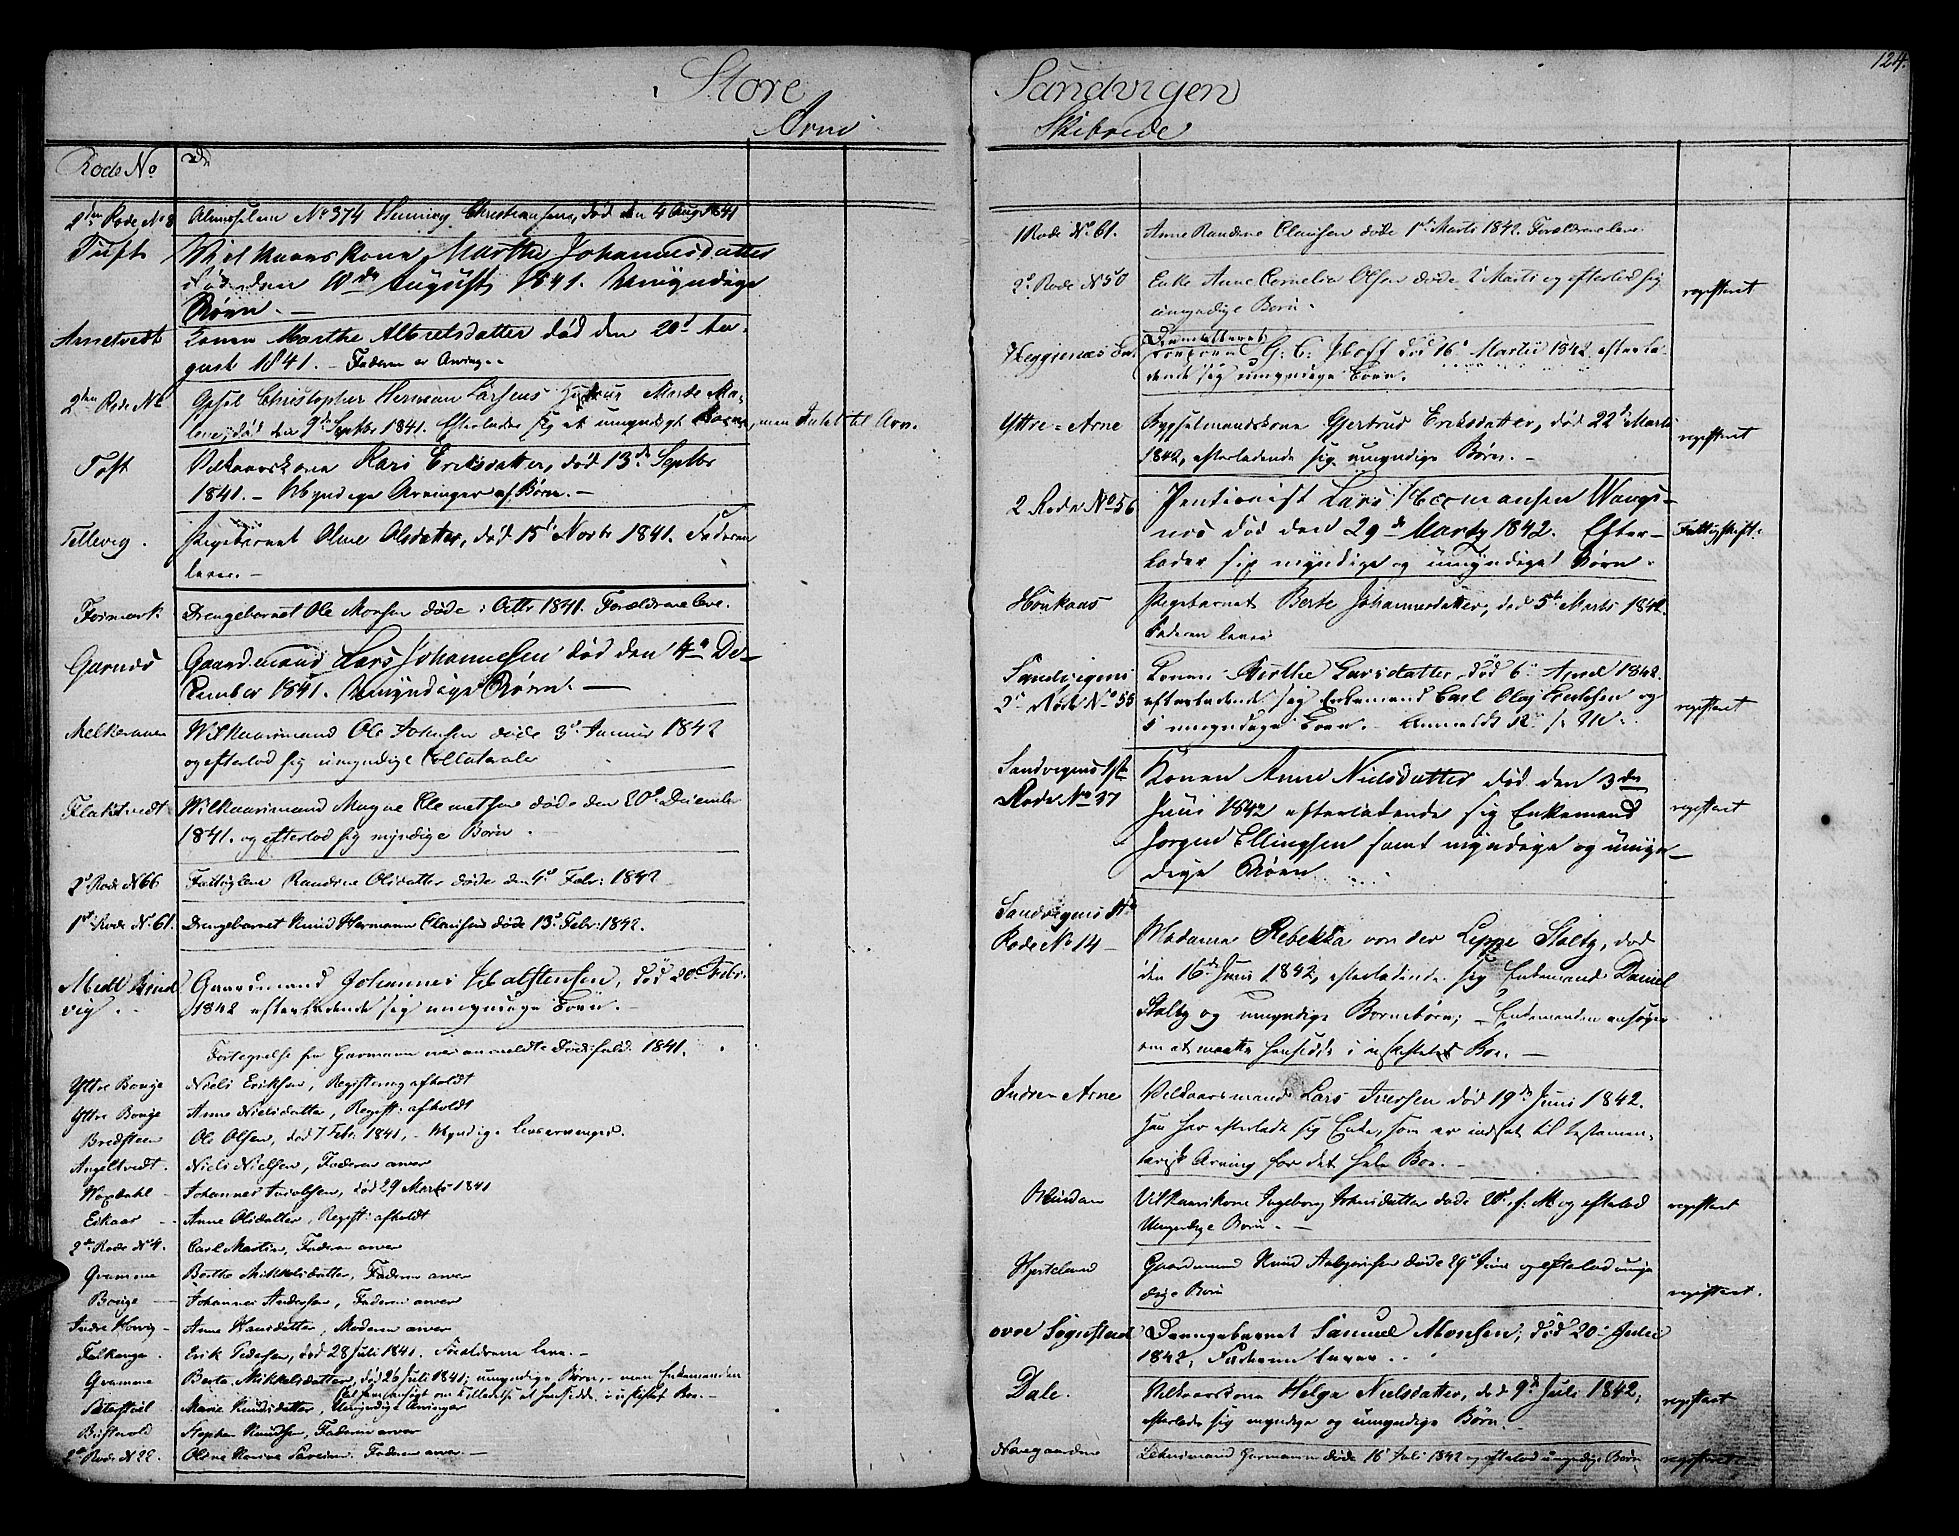 Store
Arne
Rode No
2den Rode No 8 Almisselem No 374 Henning Christiansen, død den 4 Aug 1841
Tuft Vilkaarskone Marthe Johannesdatter
død den 10de August 1841. Umyndige
Børn. —
Arnetvedt Konen Marthe Albretsdatter død den 20d Au-
gust 1841. — Faderen er Arving. -
2den Rode No Christopher Herman Larsens Hustrue Marte Ma-
lene, død den 9de Septbr 1841. Efterlader sig et umyndigt Barn, men Intet til Arv.
Toft Vilkaarskone Kari Eriksdatter, død 13de Septbr
1841. — Myndige Arvinger af Børn. —
Tellevig. Pigebarnet Oline Olsdatter, død 15d Novbr 1841. Faderen
lever. —
Drengebarnet Ole Monsen døde i Octbr 1841. Forældrene leve.
Garnæs Gaardmand Lars Johannesen død den 4de De-
cember 1841. Umyndige Børn. —
Vilkaarsmand Ole døde 3d Januar 1842
og efterlod sig umyndige Collaterale
Flaktvedt Vilkaarsmand Magne Clemetsen døde den 20d December
1841. og efterlod sig myndige Børn.
2d Rode No 66 Fattiglem Randine Olsdatter døde den 4d Febr: 1842
1st Rode No. 61. Drengebarnet Knud Herman Clausen døde 13d Febr: 1842.
Midt Bind
vig. Gaardmand Johannes Halstensen, død 20 Febr.
1842 efterladende sig umyndige Børn. —
Fortegnelse fra Garmann over anmeldte Dødsfald 1841.
Yttre Bouge Niels Eriksen, Registering afholdt
Yttre Bouge Anne Nielsdatter, Regist: afholdt
Bredsteen Ole Olsen, død 7 Febr. 1841, — Myndige Livsarvinger.
Angeltvedt. Niels Nielsen, Faderen arver
Vaxdahl — Johannes Iversen, død 29 Marts 1841
Eikaas — Anne Olsdatter, Regist: afholdt
2de Rode No 4. Carl Martin, Faderen arver
Gramme Berthe Mikkelsdatter, Faderen arver
Bouge — Johannes Andersen, Faderen arver
Indre Horvig — Anne Hansdatter, Moderen arver
Falkanger. Erik Pedersen, død 28 Juli 1841. Forældrene leve. —
Gramme Berta Mikkelsdatter, død 26 Juli 1841; umyndige Børn, — men Enkemanden
skal have ansøgt om Tilladelse at hensidde i uskiftet Boe. —
Marie Knudsdatter, Umyndige Arvinger
Stephen Knudsen, Faderen arver
2de Rode No 22. Oline Faderen arver —
124.
Sandvigen
Skibrede
1 Rode No. 61. Anne Randine Clausen døde 1ste Marts 1842. Forældrene leve
2d Rode No 50 Enke Anne Cornelia Olsen døde 2 Marts og efterlod sig registeret
umyndige Børn.
G. C. død 16d Martii 1842 efterla-
dende sig umyndige Børn.
Yttre-Arne Bygselmandskone Gjertrud Eriksdatter, død 22d Marts registeret
1842, efterladende sig umyndige Børn. —
2 Rode No 56 Pentionist Lars Hermansen Wangs-
nes død den 29de Martz 1842. Efter- Fattigskift:
lader sig myndige og umyndige Børn.
Houkaas Pigebarnet Berte Johannesdatter, død 5te Marts 1842.
Faderen lever
Sandvigens
2d Rode No 55 Konen Berthe Larsdatter død 6d April 1842.
efterladende sig Enkemand Carl Olaj og registeret
5 umyndige Børn. —
Sandvigens 1ste
Rode No 37 Konen Anne Nielsdatter død den 3de
Juni 1842 efterladende sig Enkemand registeret
Jørgen Ellingsen samt myndige og umyn-
dige Børn
Sandvigens 1ste
Rode No 14 — Madame Rebekka von der Lippe Stalby, død
den 16de Juni 1842, efterladende sig Enkemand Daniel
Stalby og umyndige Børnebørn; — Enkemanden ansøger
om at maatte hensidde i uskiftet Boe. —
Indre-Arne Vilkaarsmand Lars Iversen død 19de Juni 1842.
Han har efterladt sig Enke, som er indsat til testamen-
tarisk Arving for det hele Boe. —
Vilkaarskone Ingeborg døde 20d f: M. og efterlod registeret
umyndige Børn. —
Hjertland Gaardmand Knud døde 29d Juni og efterlod umyn registeret.
dige Børn
øvre Songstad Drengebarnet Samuel Monsen, død 20d Julii
1842, Faderen lever.
Dale. Vilkaarskone Helga Nielsdatter, død 9d Juli 1842, registeret
efterlader sig myndige og umyndige Børn
Naagaarden Garmann døde 16 Juli 1842 og efterlod umyndige Børn registeret